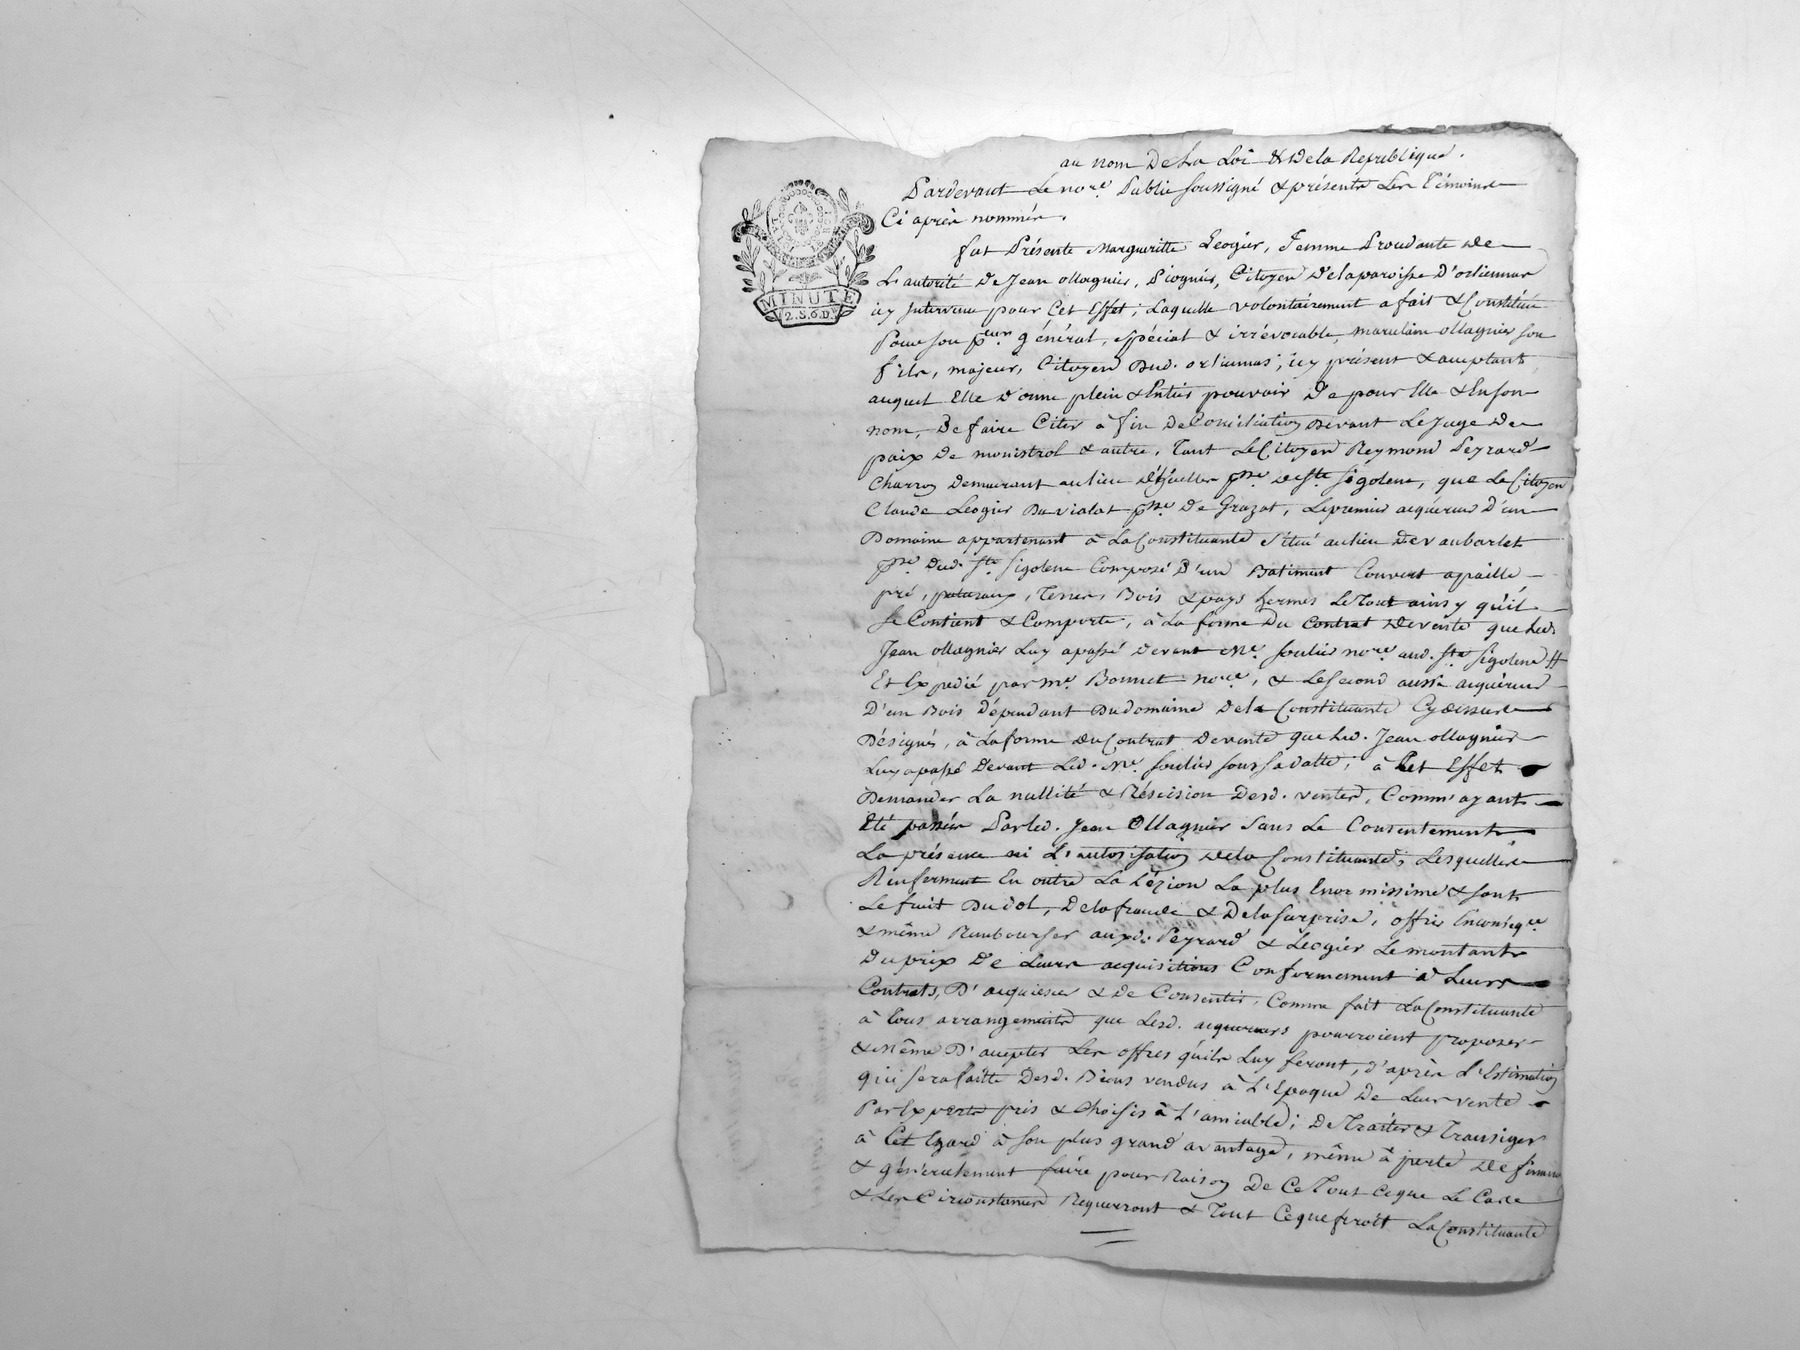 au nom De La Loi & De la République.
Pardevant Le nore. Public soussigné & présents Les témoins
Ci après nommés.
fut Présente Margueritte Leogier, femme Proudante De
L'autorité De Jean ollagnier, Citoyen De la paroisse D'
icy Intervenu pour Cet Effet; Laquelle volontairement a fait & Constitué
Pour son peur général, spécial & irrévocable, ollagnier son
fils, majeur, Citoyen Dud. icy présent & acceptant
auquel Elle D'onne plein & Entier pouvoir De pour Elle & En son
nom, De faire Citer à fin De Conciliation Devant Le Juge De
paix De monistrol & autre, Tant Le Citoyen Reymond Peyrard
Charron Demeurant au lieu psse de Ste Sigolene, que Le Citoyen
Claude Leogier Du vialat psse. De Grazat, Le premier acquéreur D'un
Domaine appartenant à La Constituante situé au lieu De vaubarlet
psse Dud. Ste Sigolene Composé D'un Batiment Couvert apaille
pré, paturaux, Terres, Bois & pays hermes Le Tout ainsy qu'il
se Contient & Comporte, à La forme Du Contrat De vente que Led.
Jean ollagnier Luy a passé Devant Me. soulier nore. aud. Ste Sigolene #
Et Expedié par me. Bonnet nore, & Le second aussi acquéreur
D'un Bois Dépendant Du domaine De la Constituante Cy dessus
Désigné, à La forme du Contrat De vente que Led. Jean ollagnier
Luy a passé Devant Led. Me. soulier sous sa datte; à Cet Effet
Demander La nullité & Réscision Desd. ventes, Comm'ayant
Eté passées Par led. Jean Ollagnier sans Le Consentement
La présence ni L'autorisation De la Constituante, Lesquelles
Renferment En outre La Lézion La plus Enormissime & sont
Le fruit Du dol, De la fraude & De la surprise, offrir Enconseqce
& même Rembourser auxd. Peyrard & Léogier Le montant
Du prix De Leurs acquisitions Conformement à Leurs
Contrats, D'acquiescer & De Consentir, Comme fait La Constituante
à Tous arrangements que Lesd. acquereurs pourroient proposer
& Même D'accepter Les offres qu'ils Luy feront, d'après L'Estimation
qui sera faitte Desd. Biens vendus à L'Epoque De Leur vente
Par Experts pris & Choisis à L'amiable; De Traiter & Transiger
à Cet Egard à son plus grand avantage, même à perte De finance
& généralement faire pour Raison De Ce Tout Ce que Le Cas
& Les Circonstances Requerront & Tout Ce que feroit La Constituante
MINUTE
2.S.6.D